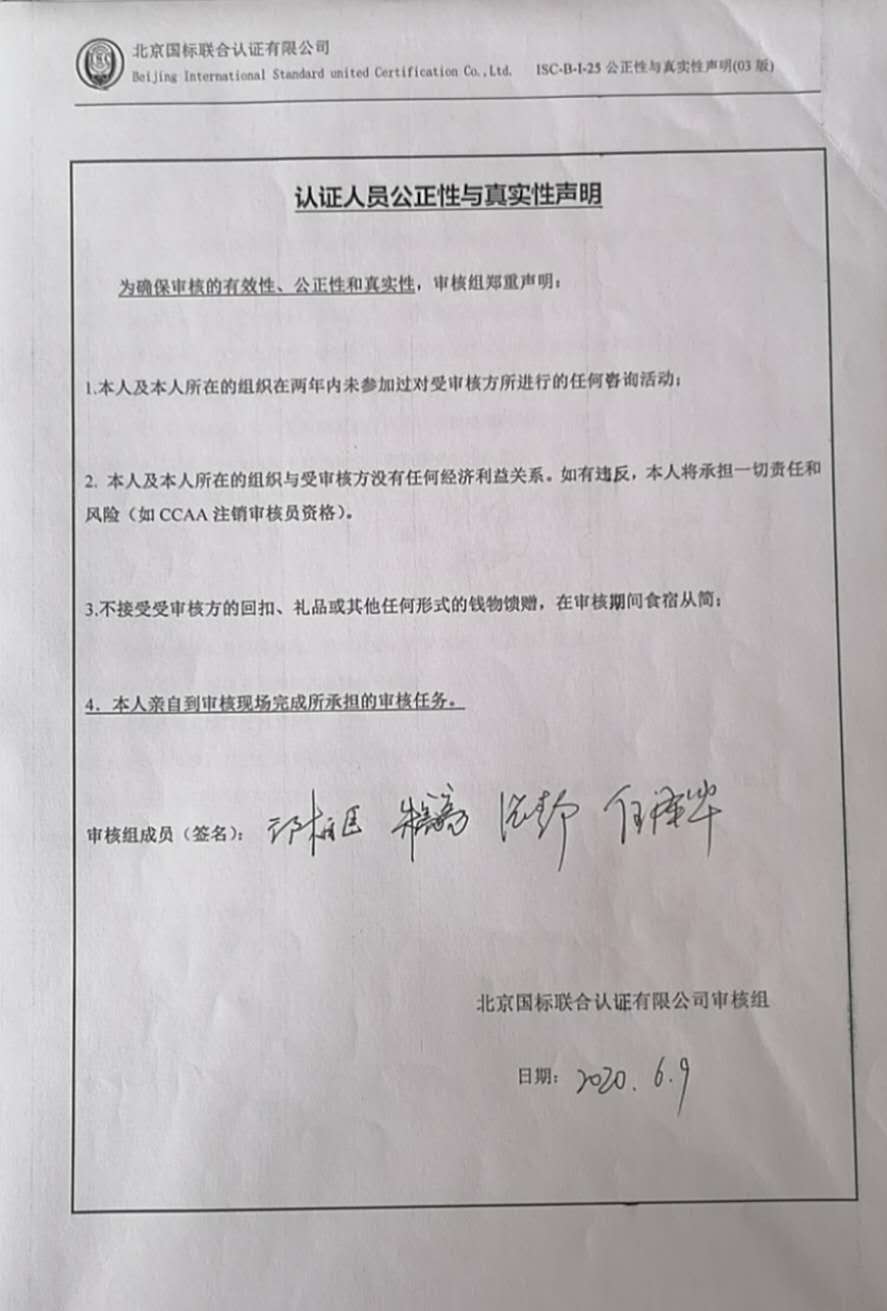 北京国标联合认证有限公司
Beijing International Standard united Certification Co.,Ltd. ISC-B-I-25 公正性与真实性声明(03 版)
认证人员公正性与真实性声明
为确保审核的有效性、公正性和真实性，审核组郑重声明：
1.本人及本人所在的组织在两年内未参加过对受审核方所进行的任何咨询活动；
2. 本人及本人所在的组织与受审核方没有任何经济利益关系。如有违反，本人将承担一切责任和
风险（如 CCAA 注销审核员资格）。
3.不接受受审核方的回扣、礼品或其他任何形式的钱物馈赠，在审核期间食宿从简；
4．本人亲自到审核现场完成所承担的审核任务。
审核组成员（签名）：
北京国标联合认证有限公司审核组
日期： 2020. 6.9